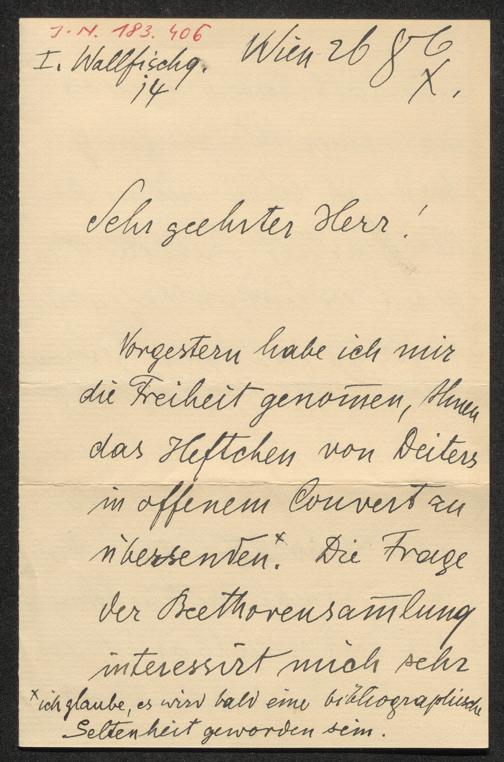 J. N. 183.406
I. Wallfischg.
14
Wien 26
X.
Sehr geehrter Herr!
Vorgestern habe ich mir
die Freiheit genom̅en, Ihnen
das Heftchen von Deiters
in offenem Couvert zu
übersenden.x Die Frage
der Beethovensam̅lung
interessirt mich sehr
x ich glaube, es wird bald eine bibliographische
Seltenheit geworden sein.